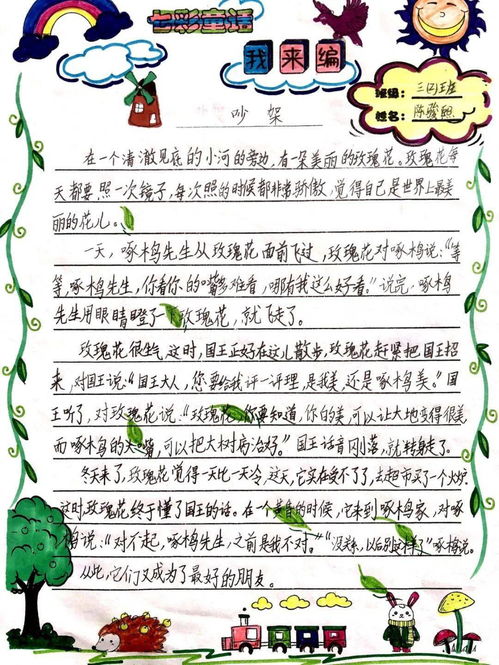 七彩童话
我来编
班级：三(2)班
姓名：陈骏熙
吵架
在一个清澈见底的小河的旁边，有一朵美丽的玫瑰花。玫瑰花每
天都要照一次镜子，每次照的时候都非常骄傲，觉得自己是世界上最美
丽的花儿。
一天，啄木鸟先生从玫瑰花面前飞过，玫瑰花对啄木鸟说：“等
等，啄木鸟先生，你看你的嘴多难看，哪有我这么好看。”说完，啄木鸟
先生用眼睛瞪了一下玫瑰花，就飞走了。
玫瑰花很生气，这时，国王正好在这儿散步，玫瑰花赶紧把国王招
来，对国王说：“国王大人，您要给我评一评理，是我美，还是啄木鸟美。”国
王听了，对玫瑰花说：“玫瑰花，你要知道，你的美，可以让大地变得很美
而啄木鸟的大嘴，可以把大树病治好。”国王话音刚落，就转身走了。
冬天来了，玫瑰花觉得一天比一天冷，这天，它实在受不了了，去超市买了一个火炉，
这时玫瑰花终于懂了国王的话。在一个的时候，它来到啄木鸟家，对啄
木鸟说：“对不起，啄木鸟先生，之前是我不对。”“没关系，以后别这样了”啄木鸟说。
从此，它们又成为了最好的朋友。